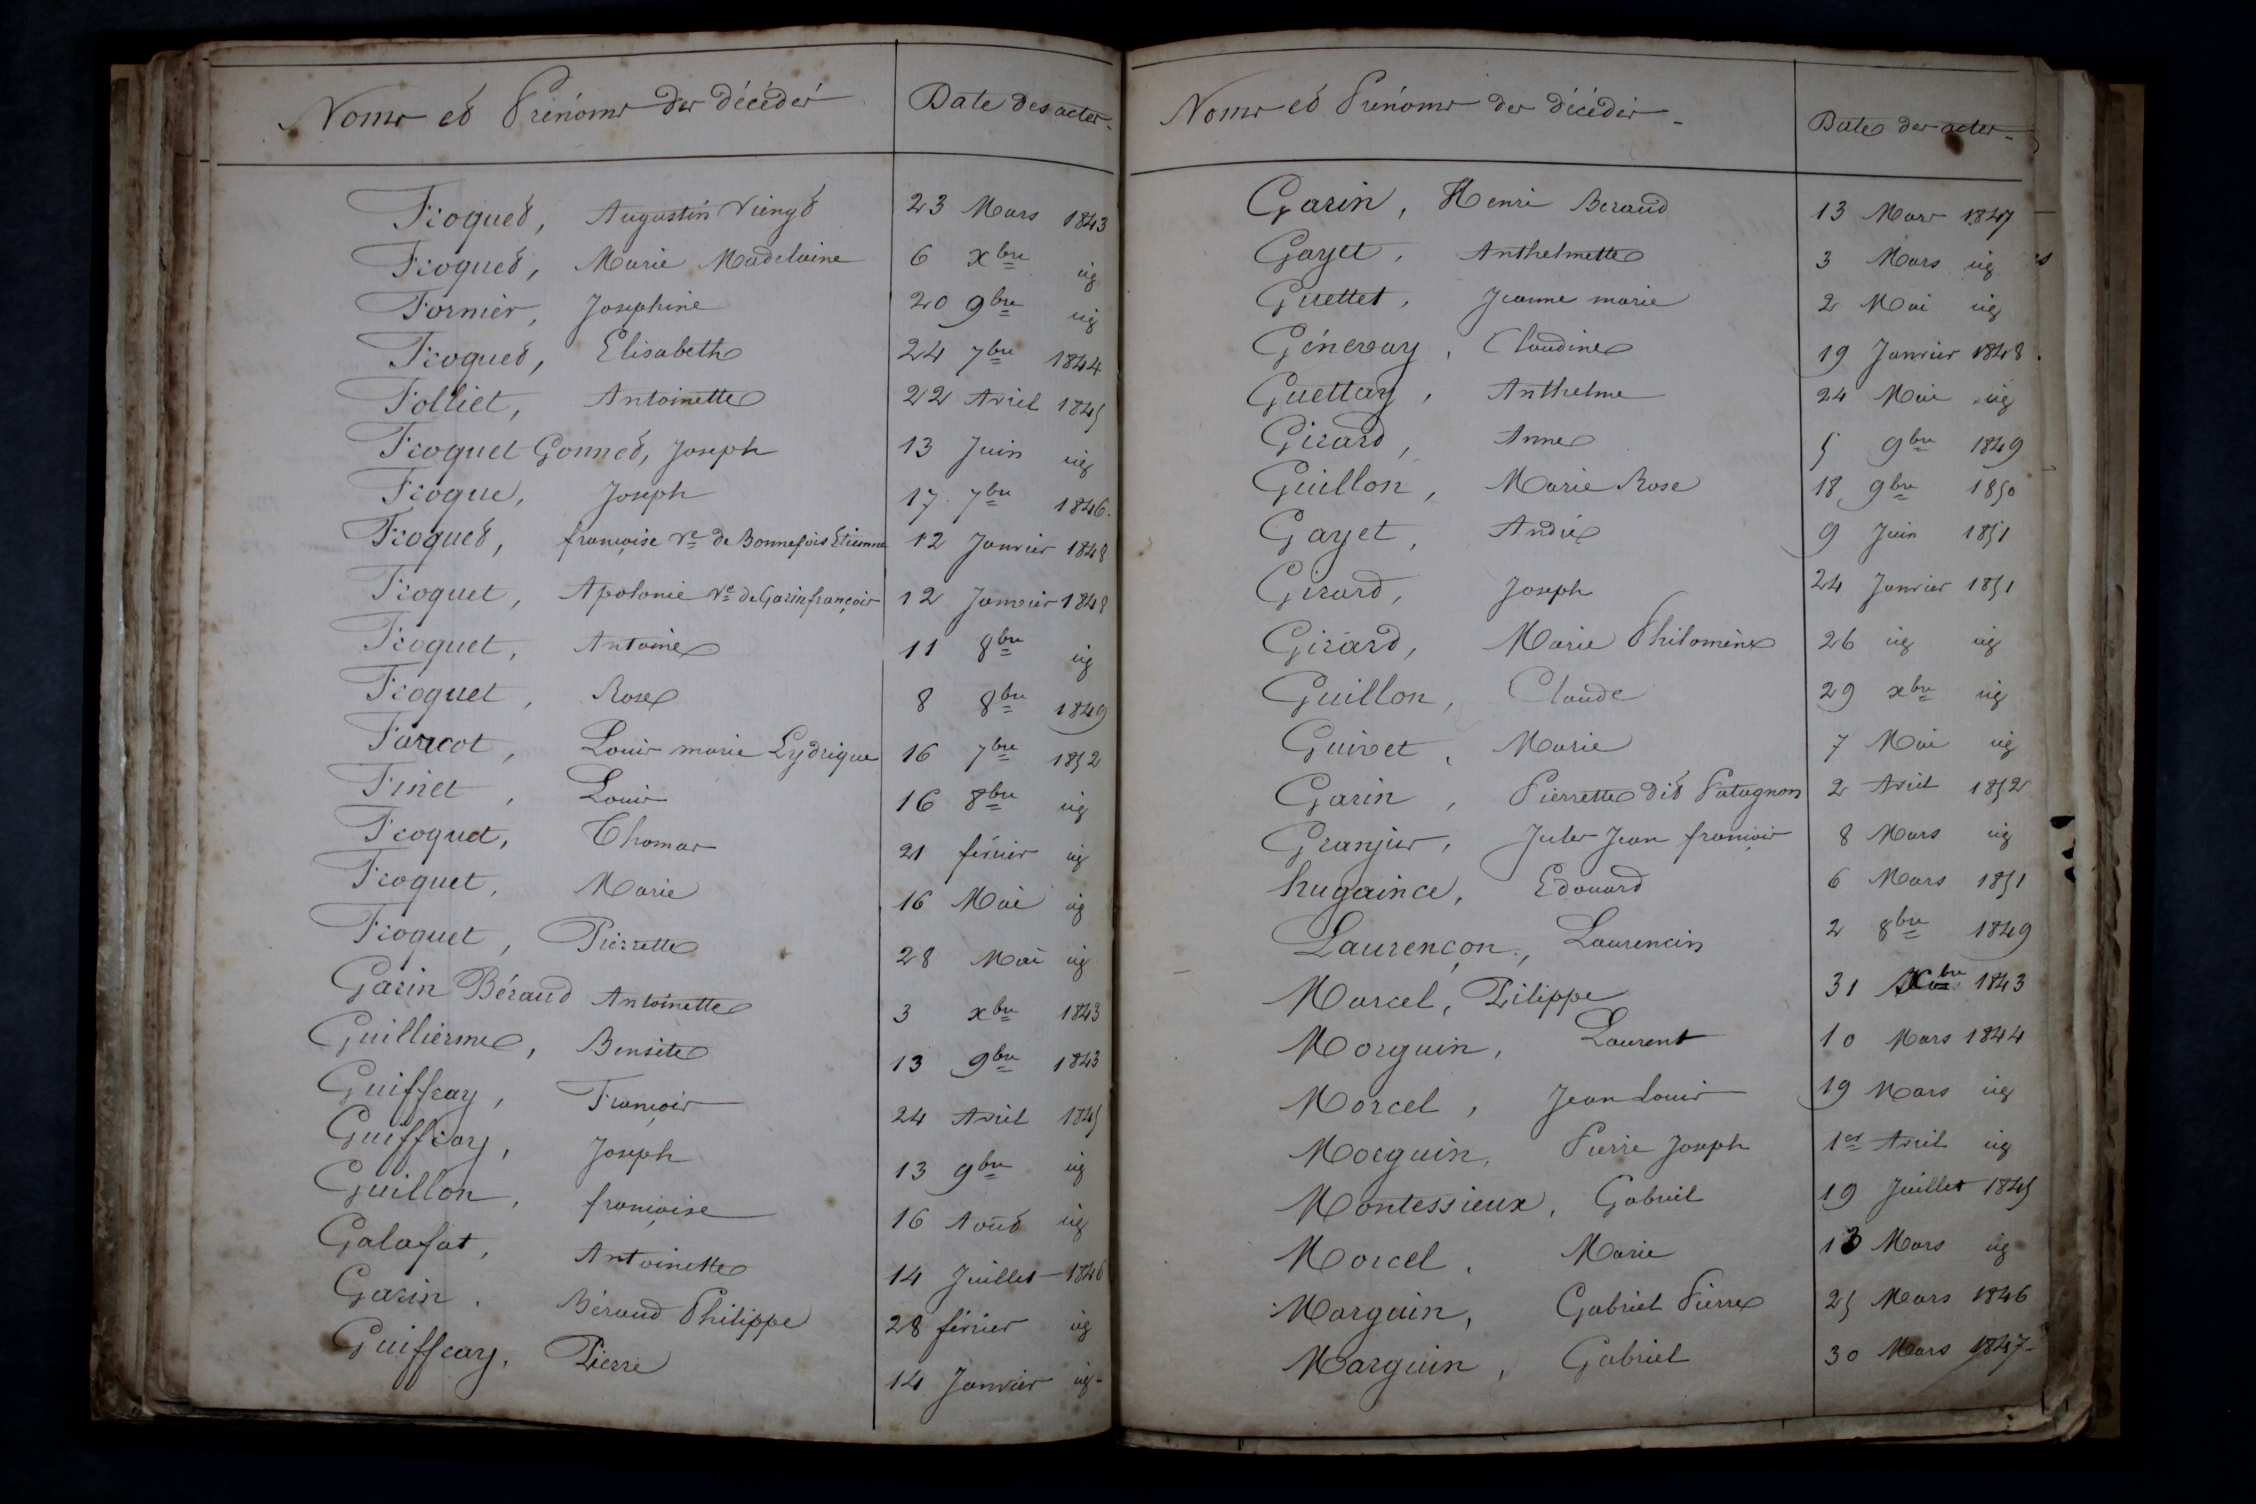 Noms et Prénoms des décédés Date des actes.
Froquet, Augustin Vingt 23 Mars 1843
Froquet, Marie Madelaine 6 xbre id
Fornier, Josephine 20 9bre id
Froquet, Elisabeth 24 7bre 1844
Folliet, Antoinette 22 Avril 1845
Froquet Gonnet, Joseph 13 Juin id
Froque, Joseph 17 7bre 1846.
Froquet, françoise Ve de Bonnefois Etienne 12 Janvier 1848
Froquet, Apolonie Ve de Garin françois 12 Janvier 1848
Froquet, Antoine 11 8bre id
Froquet, Rose 8 8bre 1849
Faucot, Louis marie Lydrique 16 7bre 1852
Finet, Louis 16 8bre id
Froquet, Thomas 21 février id
Froquet, Marie 16 Mai id
Froquet, Pierrette 28 Mai id
Garin Béraud Antoinette 3 xbre 1843
Guillierme, Bensite 13 9bre 1843
Guiffray, François 24 Avril 1845
Guiffray, Joseph 13 9bre id
Guillon, françoise 16 Août id
Galafat, Antoinette 14 Juillet 1846
Garin. Béraud Philippe 28 février id
Guiffray, Pierre 14 Janvier id
Noms et Prénoms des décédés Date des actes
Garin, Henri Beraud 13 Mars 1847
Gayet, Anthelmette 3 Mars id
Guettet, Jeanne marie 2 Mai id
Génevay, Claudine 19 Janvier 1848.
Guettay, Anthelme 24 Mai id
Girard, Anne 5 9bre 1849
Guillon, Marie Rose 18 9bre 1850
Gayet, André 9 Juin 1851
Girard, Joseph 24 Janvier 1851
Girard, Marie Philomène 26 id id
Guillon, Claude 29 xbre id
Guivet, Marie 7 Mai id
Garin, Pierrette dit Patagnon 2 Avril 1852
Granjus, Jules Jean françois 8 Mars id
hugaince, Edouard 6 Mars 1851
Laurençon, Laurencin 2 8bre 1849
Marcel, Pilippe 31 xbre 1843
Morguin, Laurent 10 Mars 1844
Morcel, Jean Louis 19 Mars id
Morguin, Pierre Joseph 1er Avril id
Montessieux, Gabriel 19 Juillet 1845
Morcel, Marie 13 Mars id
Marguin, Gabriel Pierre 25 Mars 1846
Marguin, Gabriel 30 Mars 1847